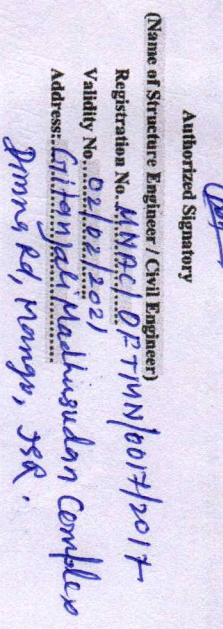 Authorized Signatory
(Name of Structure Engineer / Civil Engineer)
Registration No. MNAC/OFTMN/0017/2017
Validity No. 02/02/2021
Address: Gitanjali Madhusudan Complex
Rd, Mango, JSR.